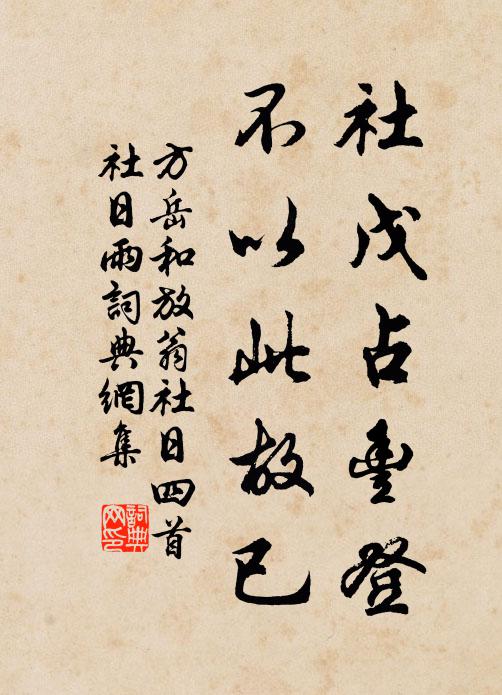 社戊占豊登
不以此故已
方岳和放翁社日四首
社日雨詞典網集
詞典
网印